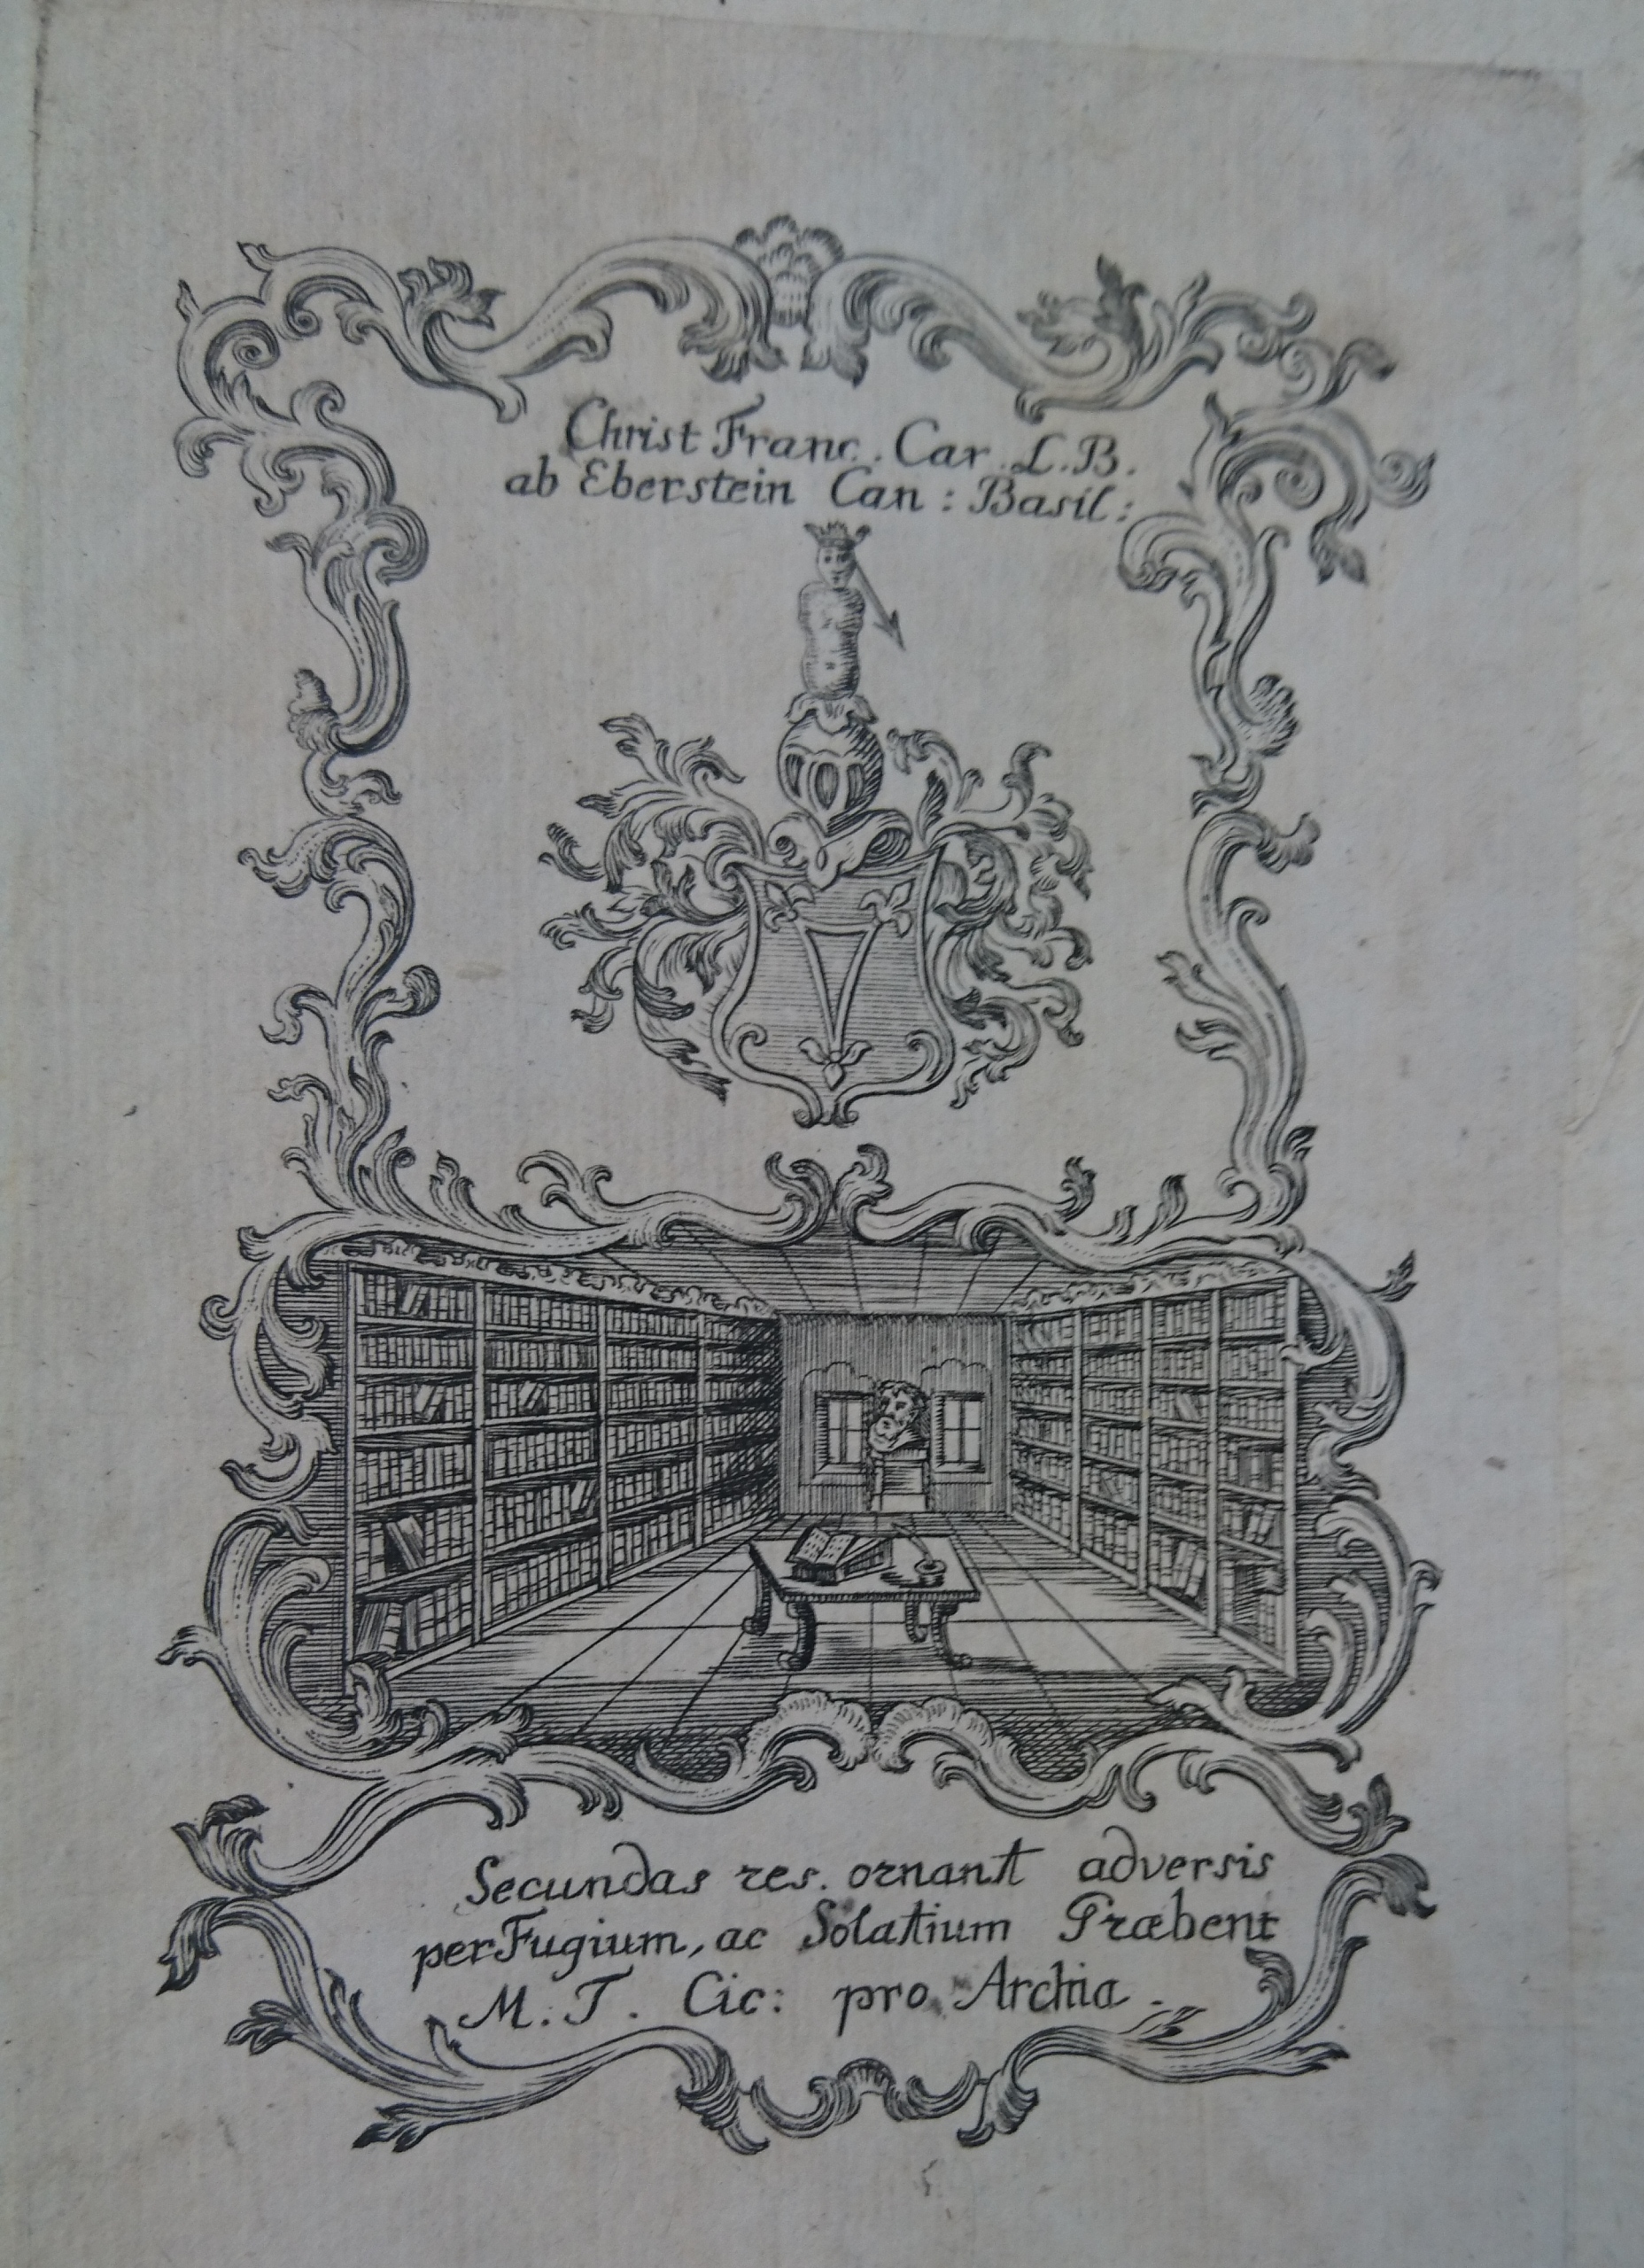 Christ Franc. Car. L. B.
ab Eberstein Can: Basil:
Secundas res. ornant adversis
perFugium, ac Solatium Præbent
M. T. Cic: pro Archia.